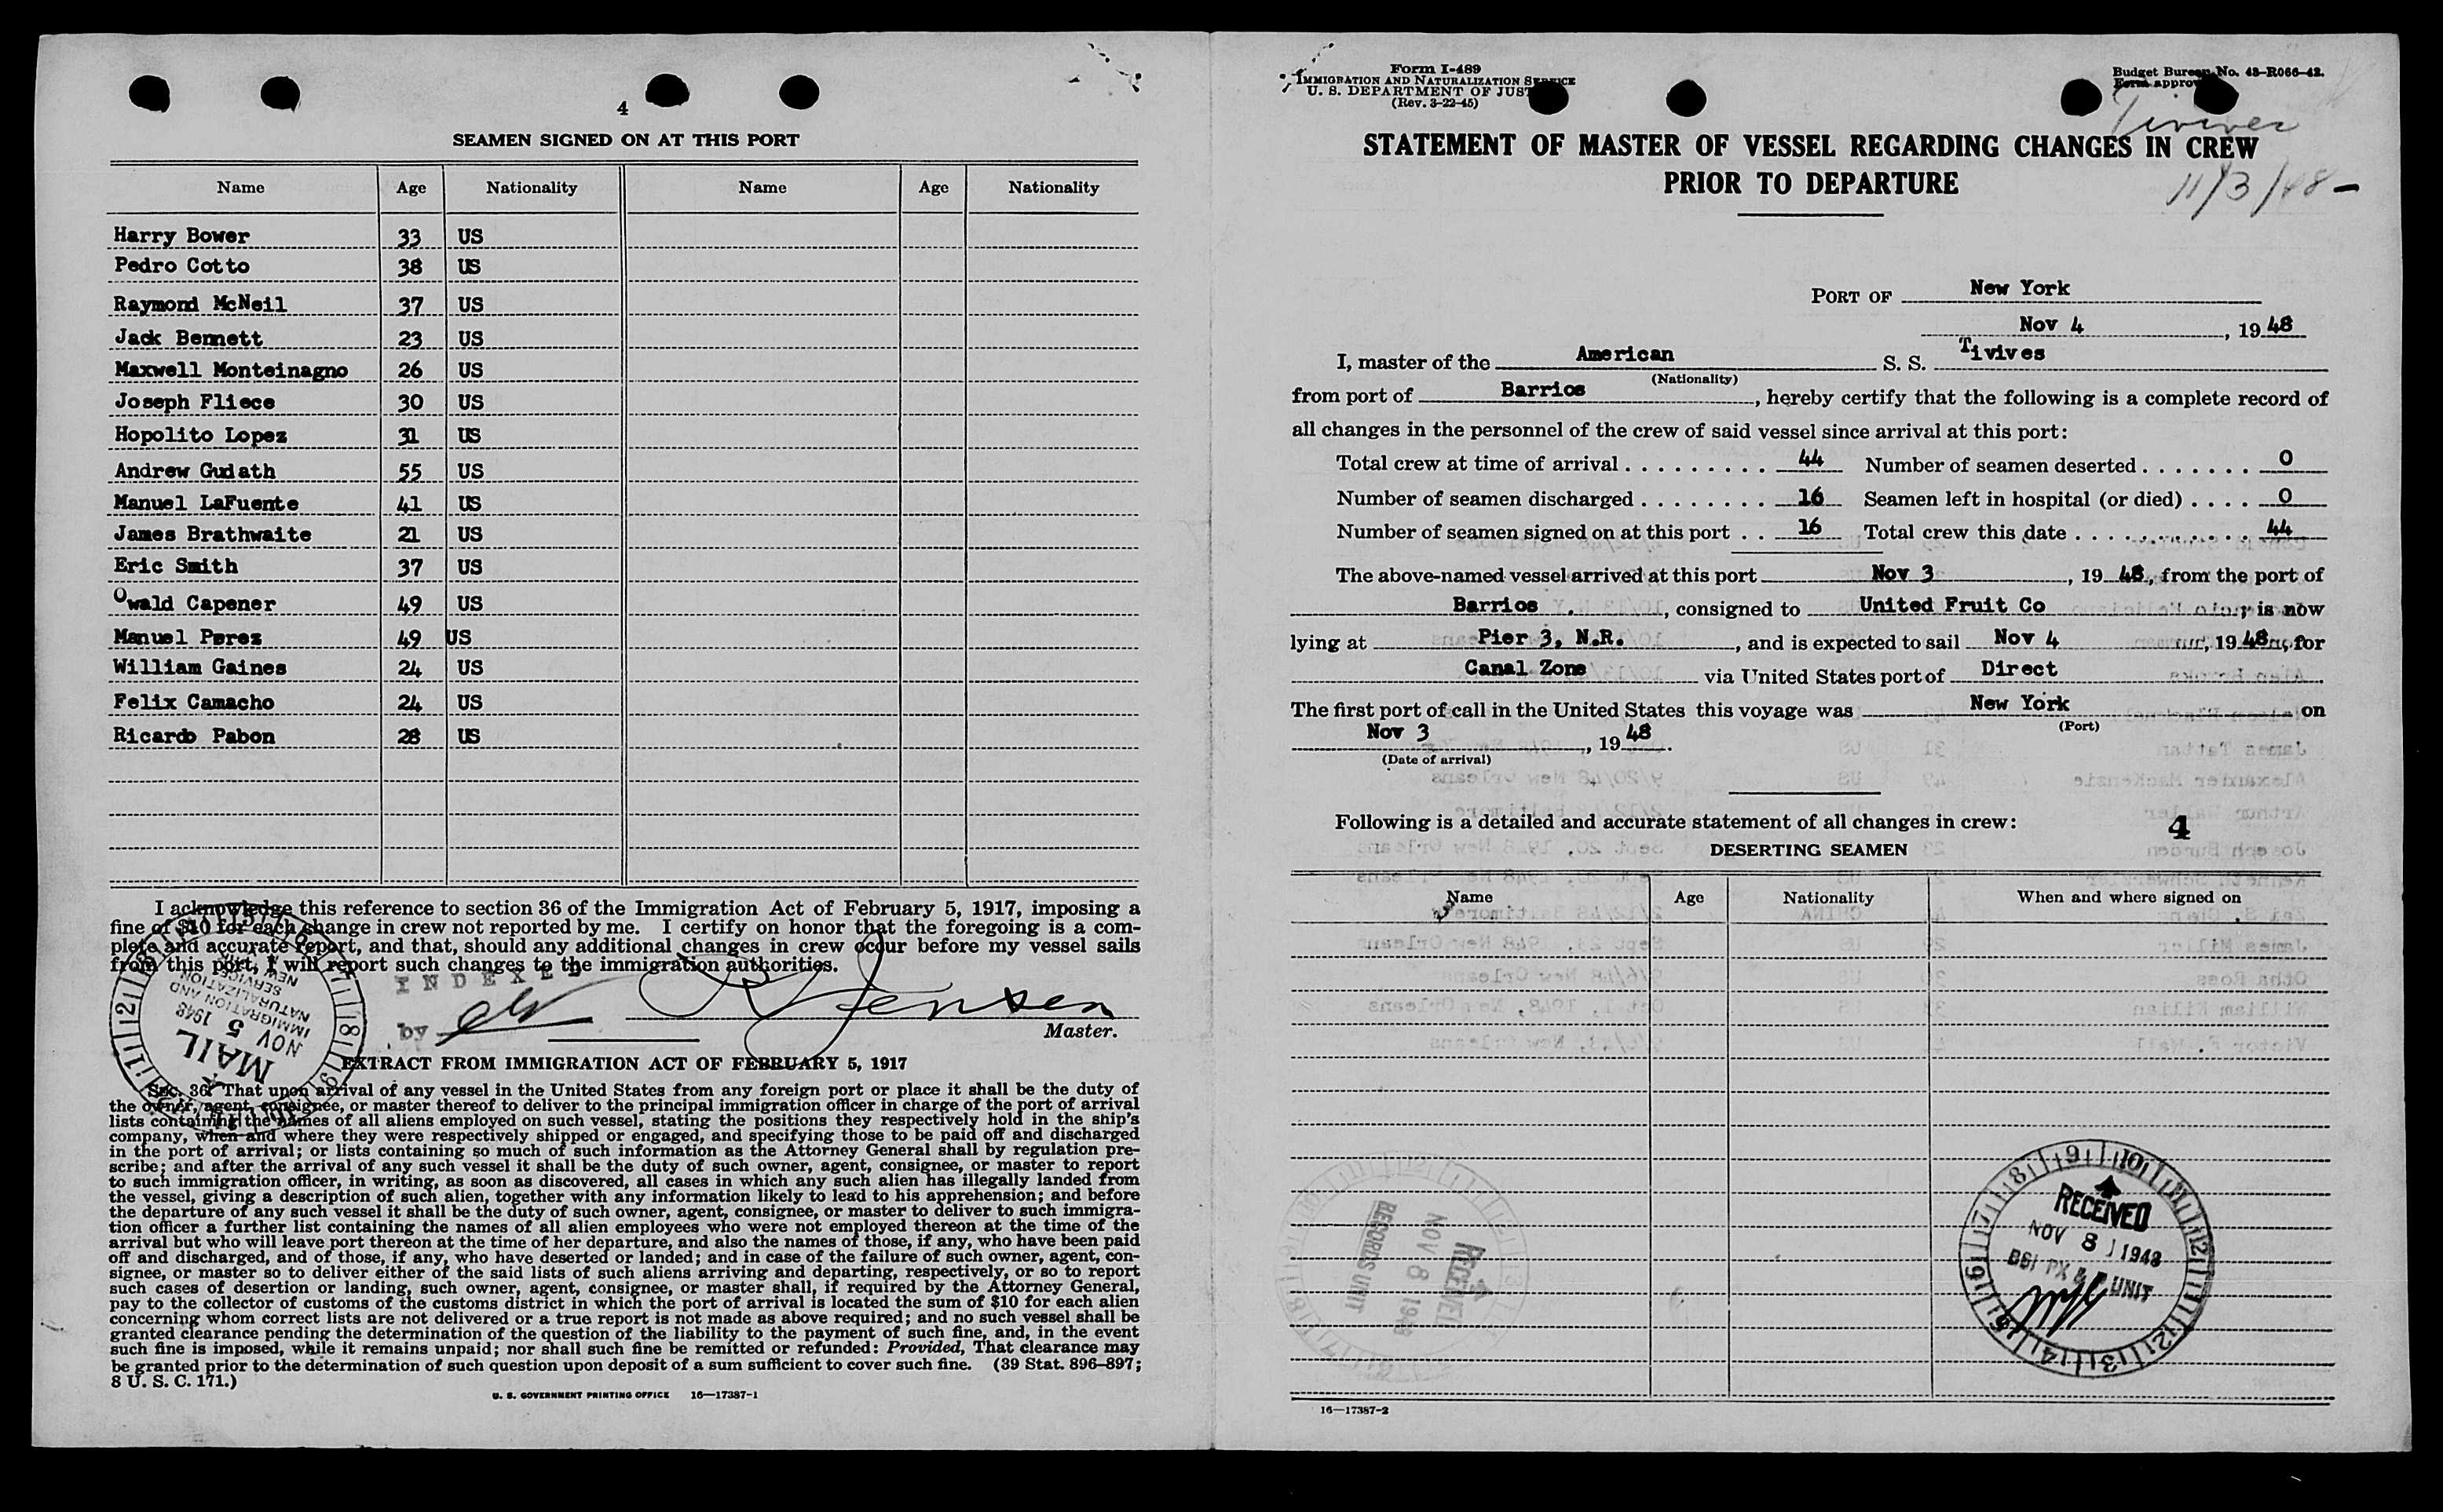 4
SEAMEN SIGNED ON AT THIS PORT
Name Age Nationality Name Age Nationality
Harry Bower 33 US
Pedro Cotto 38 US
Raymond McNeil 37 US
Jack Bennett 23 US
Maxwell Monteinagno 26 US
Joseph Fliece 30 US
Hopolito Lopez 31 US
Andrew Gudath 55 US
Manuel LaFuente 41 US
James Brathwaite 21 US
Eric Smith 37 US
Owald Capener 49 US
Manuel Perez 49 US
William Gaines 24 US
Felix Camacho 24 US
Ricardo Pabon 28 US
I acknowledge this reference to section 36 of the Immigration Act of February 5, 1917, imposing a
fine of $10 for each change in crew not reported by me. I certify on honor that the foregoing is a com-
plete and accurate report, and that, should any additional changes in crew occur before my vessel sails
from this port, I will report such changes to the immigration authorities.
INDEXED
by
Jensen
Master.
MAIL
NOV 5 1948
IMMIGRATION AND
NATURALIZATION
SERVICE
NEW YORK
EXTRACT FROM IMMIGRATION ACT OF FEBRUARY 5, 1917
Sec. 36. That upon arrival of any vessel in the United States from any foreign port or place it shall be the duty of
the owner, agent, consignee, or master thereof to deliver to the principal immigration officer in charge of the port of arrival
lists containing the names of all aliens employed on such vessel, stating the positions they respectively hold in the ship's
company, when and where they were respectively shipped or engaged, and specifying those to be paid off and discharged
in the port of arrival; or lists containing so much of such information as the Attorney General shall by regulation pre-
scribe; and after the arrival of any such vessel it shall be the duty of such owner, agent, consignee, or master to report
to such immigration officer, in writing, as soon as discovered, all cases in which any such alien has illegally landed from
the vessel, giving a description of such alien, together with any information likely to lead to his apprehension; and before
the departure of any such vessel it shall be the duty of such owner, agent, consignee, or master to deliver to such immigra-
tion officer a further list containing the names of all alien employees who were not employed thereon at the time of the
arrival but who will leave port thereon at the time of her departure, and also the names of those, if any, who have been paid
off and discharged, and of those, if any, who have deserted or landed; and in case of the failure of such owner, agent, con-
signee, or master so to deliver either of the said lists of such aliens arriving and departing, respectively, or so to report
such cases of desertion or landing, such owner, agent, consignee, or master shall, if required by the Attorney General,
pay to the collector of customs of the customs district in which the port of arrival is located the sum of $10 for each alien
concerning whom correct lists are not delivered or a true report is not made as above required; and no such vessel shall be
granted clearance pending the determination of the question of the liability to the payment of such fine, and, in the event
such fine is imposed, while it remains unpaid; nor shall such fine be remitted or refunded: Provided, That clearance may
be granted prior to the determination of such question upon deposit of a sum sufficient to cover such fine. (39 Stat. 896–897;
8 U. S. C. 171.)
U. S. GOVERNMENT PRINTING OFFICE 16—17387-1
Form I-489
IMMIGRATION AND NATURALIZATION SERVICE
U. S. DEPARTMENT OF JUST
(Rev. 3-22-45)
Budget Bureau No. 43-R066-42.
Form approv
Tivives
11/3/48-
STATEMENT OF MASTER OF VESSEL REGARDING CHANGES IN CREW
PRIOR TO DEPARTURE
PORT OF New York
Nov 4, 1948
I, master of the American S. S. Tivives
(Nationality)
from port of Barrios, hereby certify that the following is a complete record of
all changes in the personnel of the crew of said vessel since arrival at this port:
Total crew at time of arrival . . . . . . . . . 44 Number of seamen deserted . . . . . . . 0
Number of seamen discharged . . . . . . . . 16 Seamen left in hospital (or died) . . . . 0
Number of seamen signed on at this port . . 16 Total crew this date . . . . . . . . . . . 44
The above-named vessel arrived at this port Nov 3, 1948, from the port of
Barrios, consigned to United Fruit Co; is now
lying at Pier 3, N.R., and is expected to sail Nov 4, 1948, for
Canal Zone via United States port of Direct
The first port of call in the United States this voyage was New York on
(Port)
Nov 3, 1948.
(Date of arrival)
Following is a detailed and accurate statement of all changes in crew:
4
DESERTING SEAMEN
Name Age Nationality When and where signed on
RECEIVED
NOV 8 1948
RECORDS UNIT
RECEIVED
NOV 8 1948
BSI PX & UNIT
16—17387-2